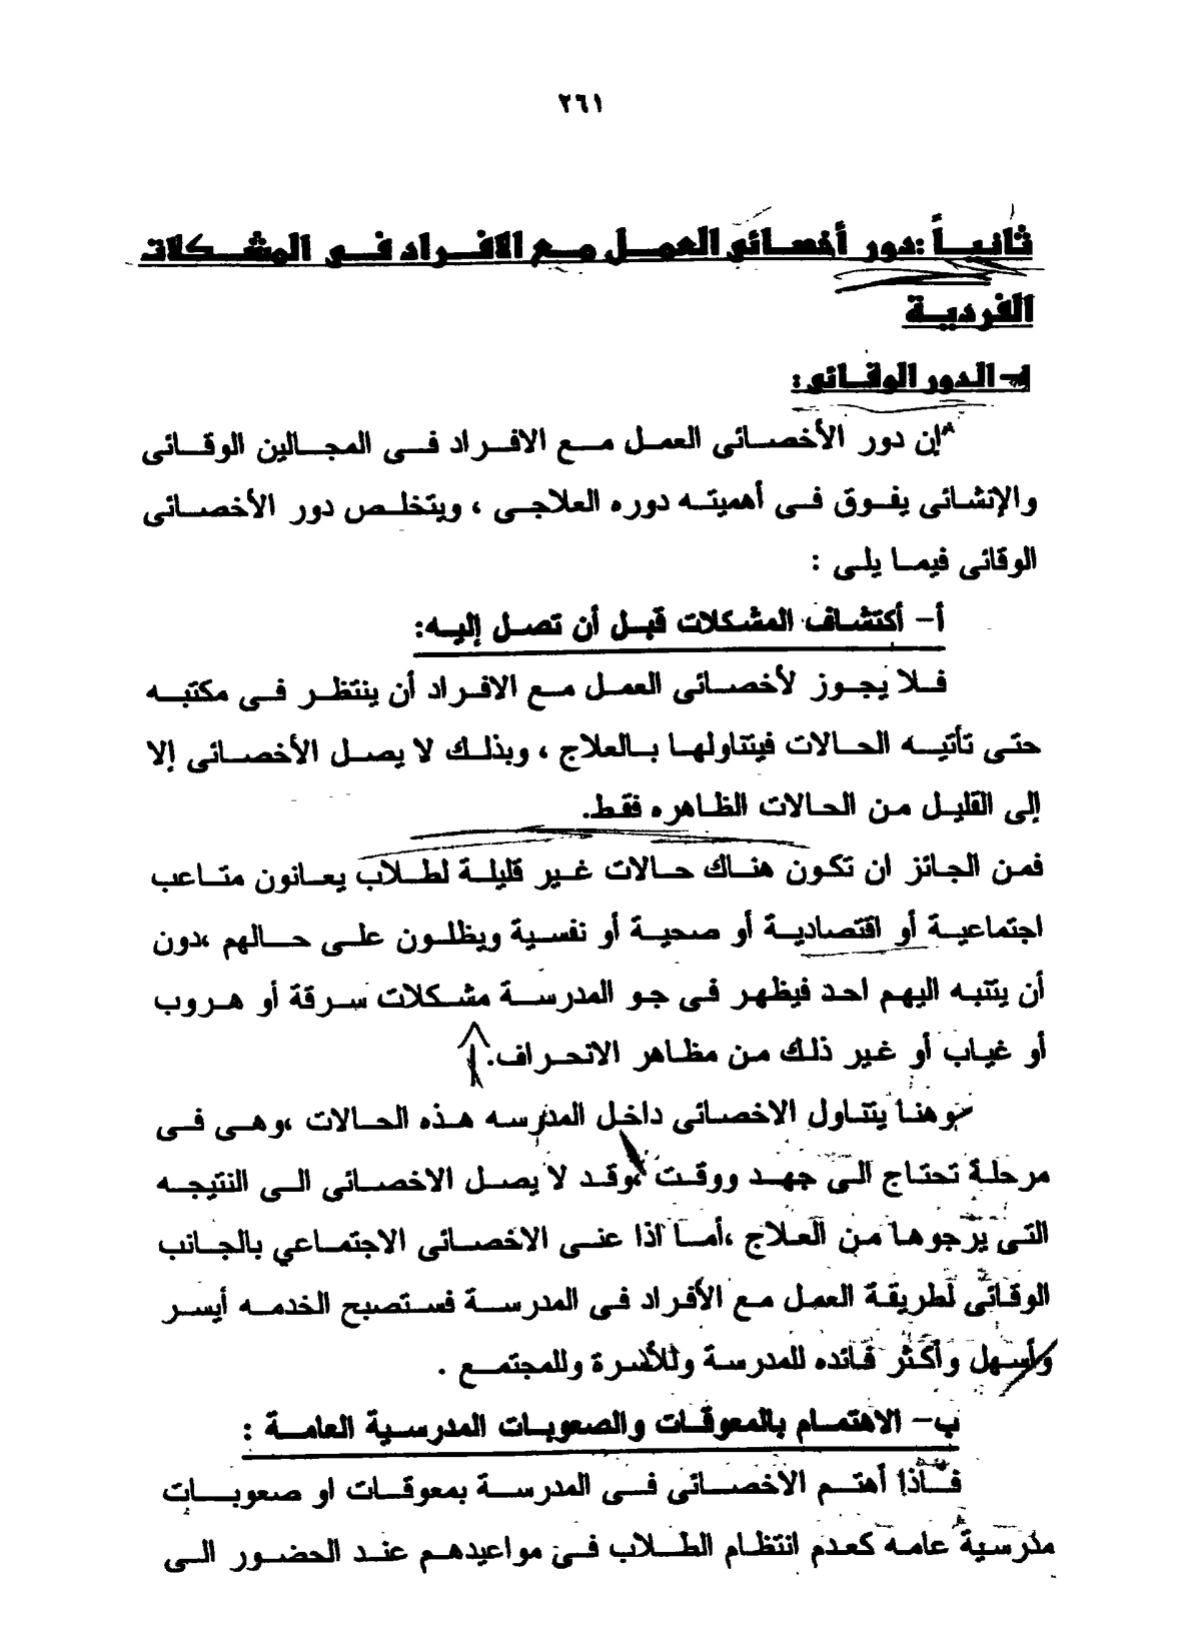 ٢٦١
ثانيـاً :دور أخصـائى العمـل مـع الافـراد فـى المشـكلات
الفرديـة
١- الدور الوقـائى:
إن دور الأخصـائى العمـل مـع الافـراد فـى المجـالين الوقـائى
والإنشـائى يفـوق فـى أهميتـه دوره العلاجـى ، ويتخلـص دور الأخصـائى
الوقائى فيمـا يلـى :
أ- أكتشـاف المشـكلات قبـل أن تصـل إليـه:
فـلا يجـوز لأخصـائى العمـل مـع الافـراد أن ينتظـر فـى مكتبـه
حتـى تأتيـه الحـالات فيتناولهـا بـالعلاج ، وبذلـك لا يصـل الأخصـائى إلا
إلى القليـل مـن الحـالات الظـاهره فقـط.
فمـن الجـائز ان تكـون هنـاك حـالات غـير قليلـة لطـلاب يعـانون متـاعب
اجتماعيـة أو اقتصاديـة أو صحيـة أو نفسـية ويظلـون علـى حـالهم ،دون
أن ينتبـه اليهـم احـد فيظهـر فـى جـو المدرسـة مشـكلات سـرقة أو هـروب
أو غيـاب أو غـير ذلـك مـن مظـاهر الانحـراف.
وهنـا يتنـاول الاخصـائى داخـل المدرسـه هـذه الحـالات ،وهـى فـى
مرحلـة تحتـاج الـى جهـد ووقـت ،وقـد لا يصـل الاخصـائى الـى النتيجـه
التـى يرجوهـا مـن العـلاج ،أمـا اذا عنـى الاخصـائى الاجتمـاعي بالجـانب
الوقـائى لطريقـة العمـل مـع الأفـراد فـى المدرسـة فسـتصبح الخدمـه أيسـر
وأسـهل وأكـثر فـائده للمدرسـة وللأسـرة وللمجتمـع .
ب- الاهتمـام بالمعوقـات والصعوبـات المدرسـية العامـة :
فـأذا أهتـم الاخصـائى فـى المدرسـة بمعوقـات او صعوبـات
مدرسـية عامـه كعـدم انتظـام الطـلاب فـى مواعيدهـم عنـد الحضـور الـى